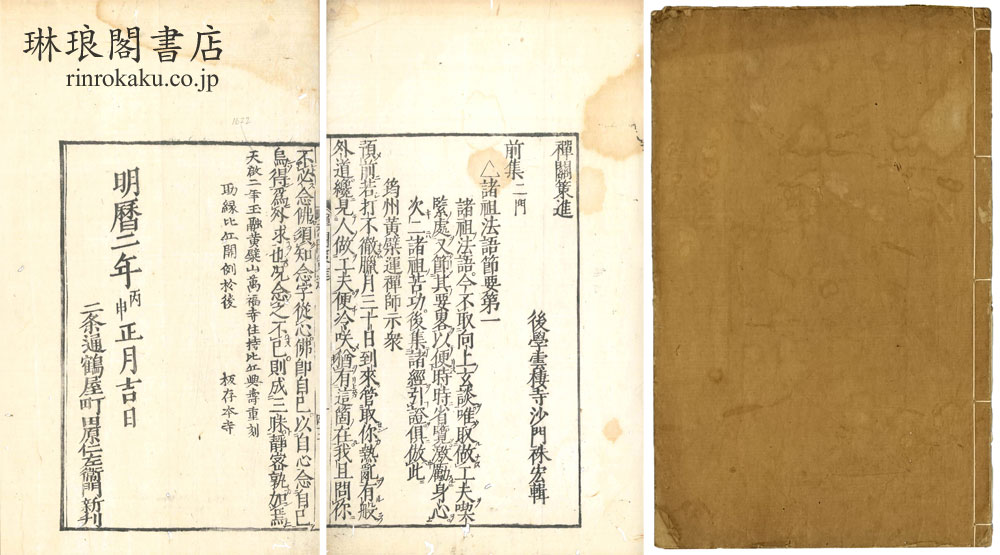 琳琅閣書店
rinrokaku.co.jp
禪關策進
後學雲棲寺沙門袾宏輯
前集二門
△諸祖法語節要第一
諸祖法語今不取向上玄談唯取做工夫喫
緊處又節其要畧以便時時省覽激勵身心
次二諸祖苦功後集諸經引證俱倣此
筠州黃檗運禪師示衆
預前若打不徹臘月三十日到來管取你熱亂有般
外道纔見人做工夫便冷咲猶有這箇在我且問你
不必念佛須知念字從心佛卽自己以自心念自己
烏得爲外求也況念之不已則成三昧靜密孰如焉
天啟二年壬融黃檗山萬福寺住持比丘興壽重刻
助緣比丘開例於後
板存本寺
明曆二年丙申正月吉日
二条通鶴屋町田原仁左衛門新刊